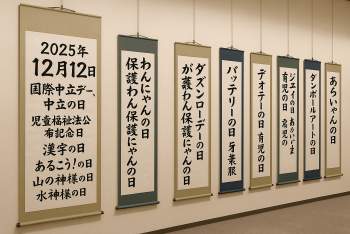 2025年
12月12日
国際中立デー、
中立の日
児童福祉法公
布記念日
漢字の日
あるこう!の日
山の神様の日
水神様の日
わんにゃんの日
保護わん保護にゃんの日
ダズンローデーの日
が護わん保護にゃんの日
バッテリーの日
デオテーの日 育児の日
ジェイの日
育児の日
ダンボールアートの日
あらいゃんの日